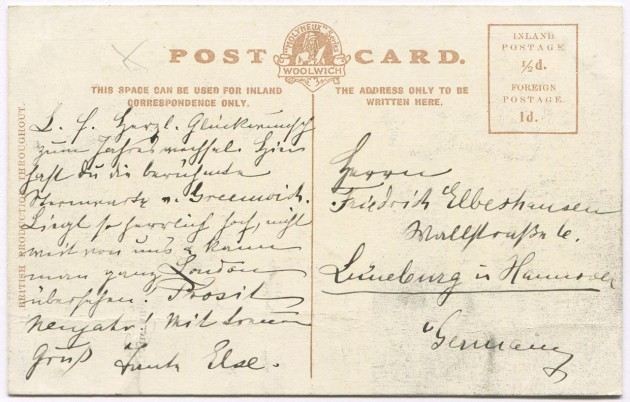 POST CARD.
"MOLYNEUX" Series
WOOLWICH
INLAND
POSTAGE
½d.
FOREIGN
POSTAGE
1d.
THIS SPACE CAN BE USED FOR INLAND
CORRESPONDENCE ONLY.
THE ADDRESS ONLY TO BE
WRITTEN HERE.
BRITISH PRODUCTION THROUGHOUT.
L. F. Herzl. Glückwunsch
zum Jahreswechsel. Hier
hast du die berühmte
Sternwarte v. Greenwich.
Liegt so herrlich hoch, nicht
weit von uns & kann
man ganz London
übersehen. Prosit
Neujahr! Mit treuem
Gruß Tante Else.
Herrn
Friedrich Elbeshausen
Wallstraße 6.
Lüneburg i/ Hannover
Germany